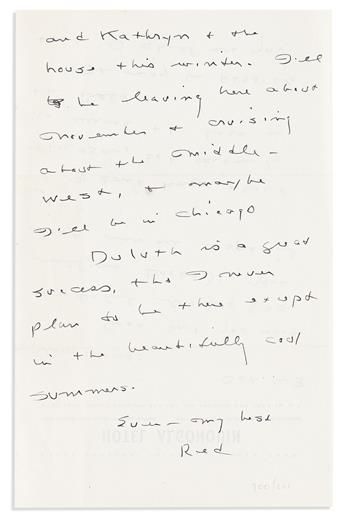 and Kathryn & the
house this winter. I'll
be leaving here about
November & cruising
about the Middle-
West, & maybe
I'll be in Chicago
Duluth is a great
success, tho I never
plan to be there except
in the beautifully cool
summers.
Ever - my best
Red
HOTEL ALGONQUIN